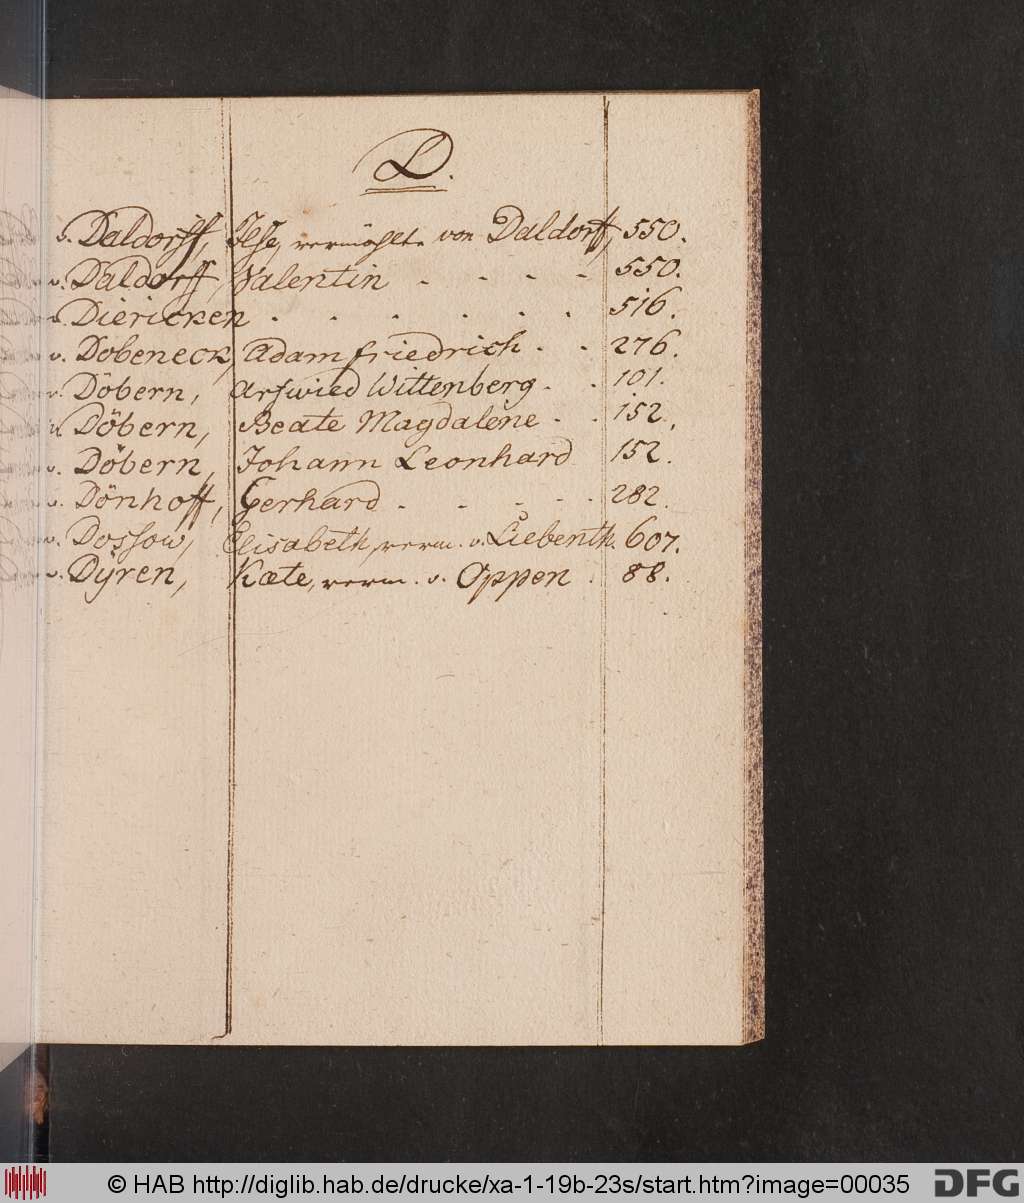 D.
v. Daldorff, Ilse, vermählte von Daldorff, 550.
v. Daldorff, Valentin . . . . 550.
v. Diericken . . . . . . 516.
v. Dobeneck, Adam Friedrich . . 276.
v. Döbern, Wittenberg . . 101.
v. Döbern, Beate Magdalene . . 152.
v. Döbern, Johann Leonhard 152.
v. Dönhoff, Gerhard . . . . . 282.
v. Dossow, Elisabeth, verm. v. Liebenth. 607.
v. Dÿren, Kæte, verm. v. Oppen . 88.
© HAB http://diglib.hab.de/drucke/xa-1-19b-23s/start.htm?image=00035
DFG